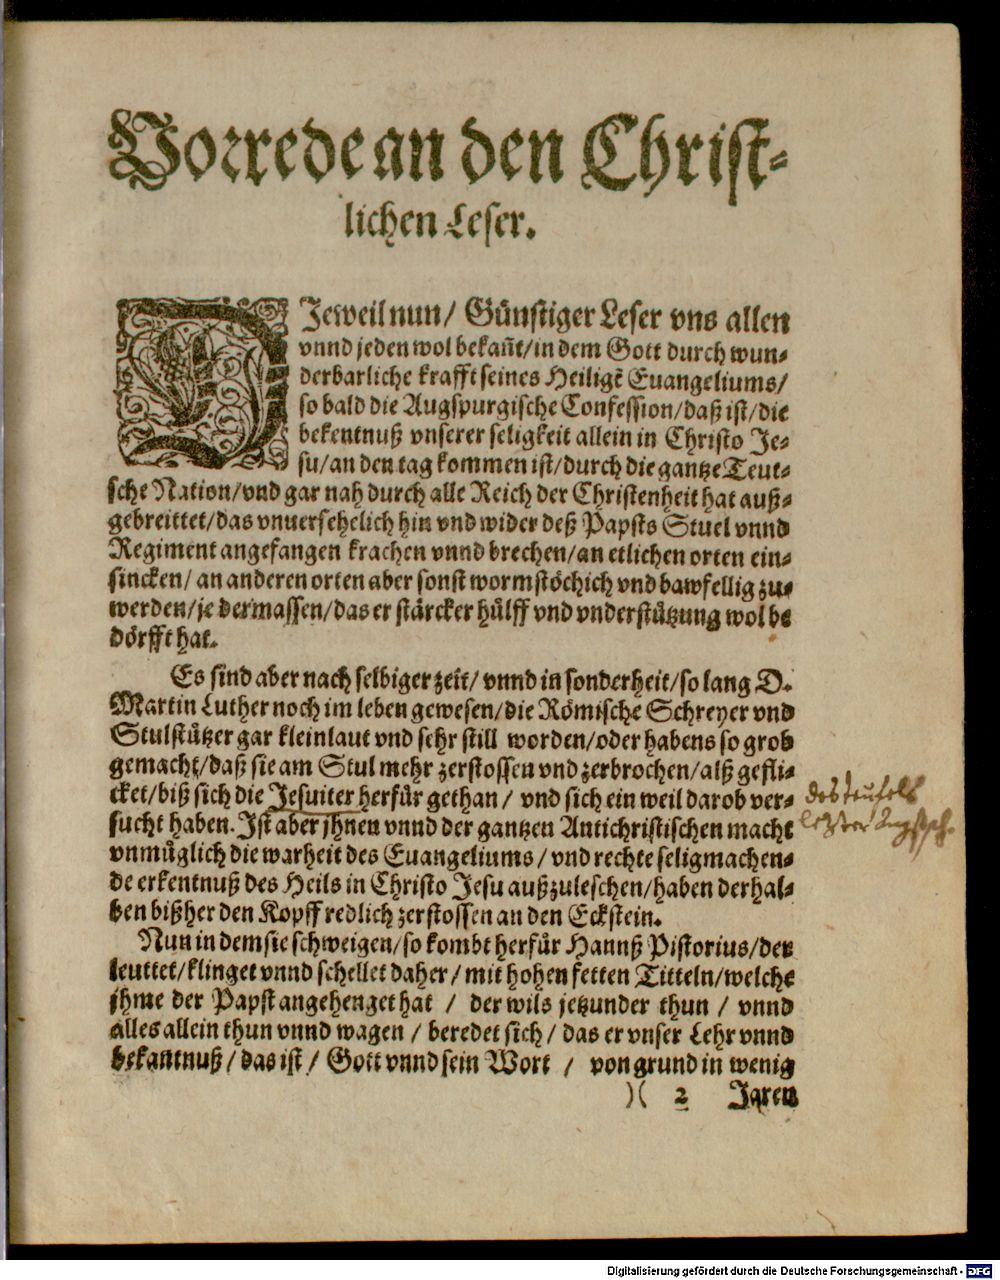 Vorrede an den Christ-
lichen Leser.
DJeweil nun/ Günstiger Leser vns allen
vnnd jeden wol bekañt/in dem Gott durch wun-
derbarliche krafft seines Heiligẽ Euangeliums/
so bald die Augspurgische Confession/daß ist/die
bekentnuß vnserer seligkeit allein in Christo Je-
su/an den tag kommen ist/durch die gantze Teut-
sche Nation/vnd gar nah durch alle Reich der Christenheit hat auß-
gebreittet/das vnuersehelich hin vnd wider deß Papsts Stuel vnnd
Regiment angefangen krachen vnnd brechen/an etlichen orten ein-
sincken/ an anderen orten aber sonst wormstöchich vnd bawfellig zu-
werden/je dermassen/das er stärcker hülff vnd vnderstützung wol be
dörfft hat.
Es sind aber nach selbiger zeit/ vnnd in sonderheit/so lang D.
Martin Luther noch im leben gewesen/die Römische Schreyer vnd
Stulstützer gar kleinlaut vnd sehr still worden/oder habens so grob
gemacht/daß sie am Stul mehr zerstossen vnd zerbrochen/alß gefli-
cket/biß sich die Jesuiter herfür gethan/ vnd sich ein weil darob ver-
des teufels
sucht haben. Jst aber jhnen vnnd der gantzen Antichristischen macht
letzter
vnmüglich die warheit des Euangeliums/vnd rechte seligmachen-
de erkentnuß des Heils in Christo Jesu außzuleschen/haben derhal-
ben bißher den Kopff redlich zerstossen an den Eckstein.
Nun in dem sie schweigen/so kombt herfür Hannß Pistorius/der
leuttet/klinget vnnd schellet daher/mit hohen fetten Titteln/welche
jhme der Papst angehenget hat / der wils jetzunder thun / vnnd
alles allein thun vnnd wagen / beredet sich/ das er vnser Lehr vnnd
bekantnuß/das ist/ Gott vnnd sein Wort / von grund in wenig
)( 2 Jaren
Digitalisierung gefördert durch die Deutsche Forschungsgemeinschaft - DFG